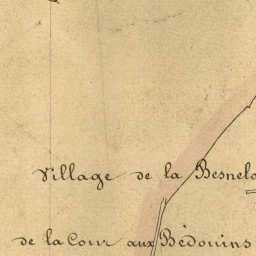 Village de la Besnelo
de la Cour aux Bédouins